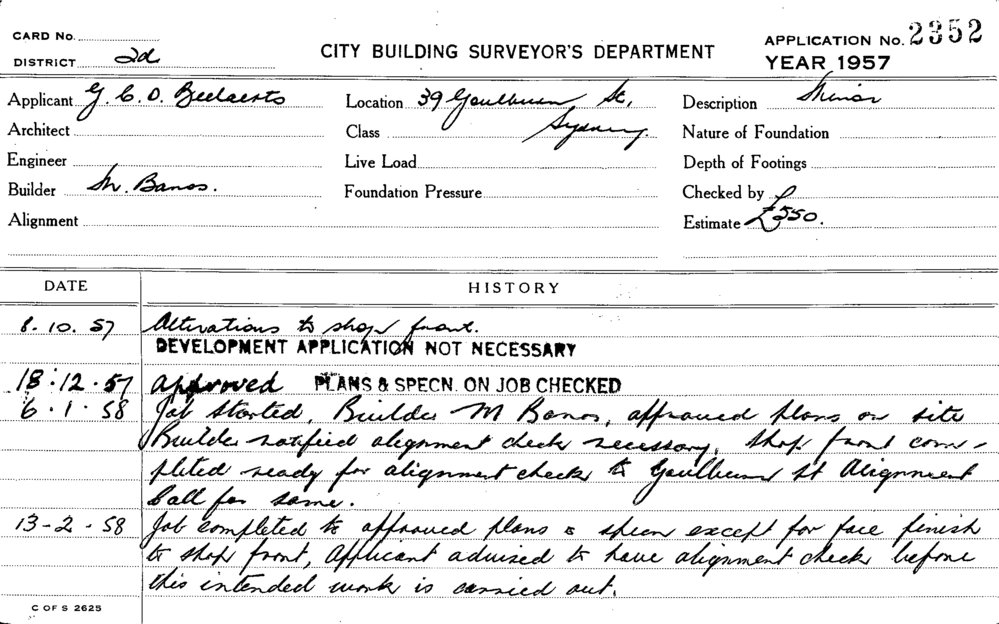 CARD No.
DISTRICT 2d
CITY BUILDING SURVEYOR'S DEPARTMENT
APPLICATION No. 2352
YEAR 1957
Applicant G. C. O. Beelaerts
Location 39 Goulburn St, Sydney.
Description Minor
Architect
Class
Nature of Foundation
Engineer
Live Load
Depth of Footings
Builder M. Banos.
Foundation Pressure
Checked by
Alignment
Estimate £550.
DATE HISTORY
8.10.57 Alterations to shop front.
DEVELOPMENT APPLICATION NOT NECESSARY
18.12.57 Approved PLANS & SPECN. ON JOB CHECKED
6.1.58 Job Started, Builder M Banos, approved plans on site
Builder notified alignment check necessary, shop front com-
pleted ready for alignment check to Goulburn St Alignment
Call for same.
13-2-58 Job completed to approved plans & specn except for face finish
to shop front, Applicant advised to have alignment check before
this intended work is carried out.
C OF S 2625